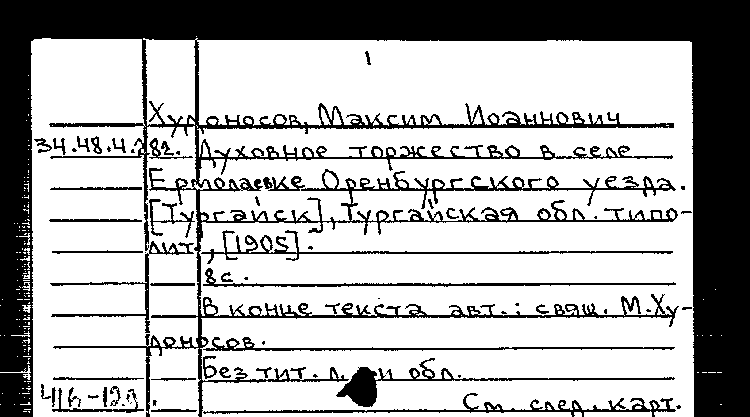 1
Худоносов, Максим Иоаннович
34.48.4.282. Духовное торжество в селе
Ермолаевке Оренбургского уезда.
[Тургайск], Тургайская обл. типо-
лит., [1905].
8с.
В конце текста авт.: свящ. М.Ху-
доносов.
Без тит. л. и обл.
См. след. карт.